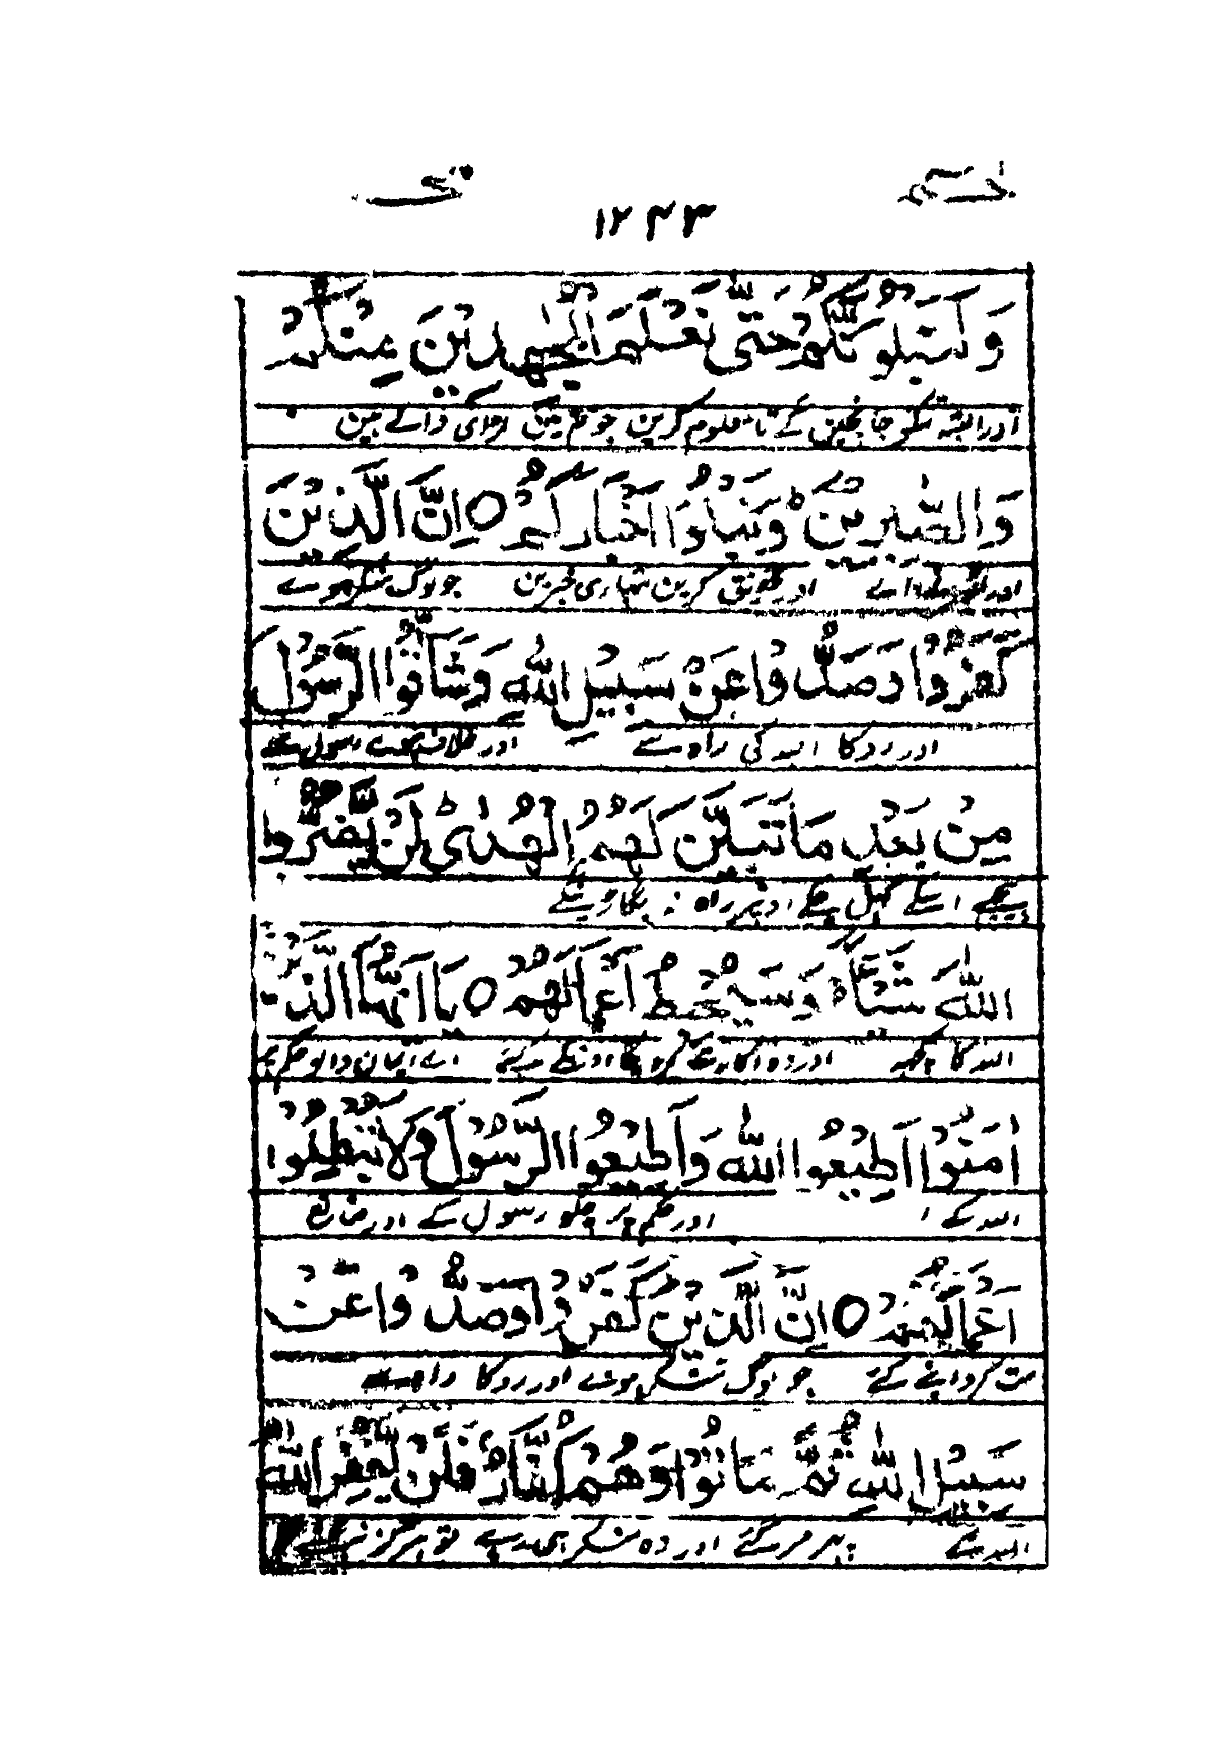 حٰم
١٢٤٣
وَلَنَبْلُوَنَّكُمْ حَتَّى نَعْلَمَ الْمُجٰهِدِيْنَ مِنْكُمْ
اور البتہ تمکو جانچیں گے تا معلوم کرین جو تم میں لڑائی والے ہین
وَالصّٰبِرِيْنَ وَنَبْلُوَا اَخْبَارَكُمْ ○ اِنَّ الَّذِيْنَ
اور کرین تمہاری خبرین جو لوگ منکر ہوئے
كَفَرُوْا وَصَدُّوْا عَنْ سَبِيْلِ اللّٰهِ وَشَاقُّوا الرَّسُوْلَ
اور روکا اللہ کی راہ سے اور رسول سے
مِنْ بَعْدِ مَا تَبَيَّنَ لَهُمُ الْهُدٰى لَنْ يَّضُرُّوا
پیچھے اسکے کھل چکے اونپر راہ نہ بگاڑینگے
اللّٰهَ شَيْئًا وَسَيُحْبِطُ اَعْمَالَهُمْ ○ يَا اَيُّهَا الَّذِيْنَ
اللہ کا کچھہ اور وہ اکارت کرے گا اونکے کئے اے ایمان والو
اٰمَنُوْا اَطِيْعُوا اللّٰهَ وَاَطِيْعُوا الرَّسُوْلَ وَلَا تُبْطِلُوْا
اللہ کے اور حکم پر چلو رسول کے اور ضائع
اَعْمَالَكُمْ ○ اِنَّ الَّذِيْنَ كَفَرُوْا وَصَدُّوْا عَنْ
مت کرو اپنے کئے جو لوگ منکر ہوے اور روکا راہ سے
سَبِيْلِ اللّٰهِ ثُمَّ مَاتُوْا وَهُمْ كُفَّارٌ فَلَنْ يَّغْفِرَ اللّٰهُ
اللہ کے پہر مر گئے اور وہ منکر ہی رہے تو ہرگز نہ